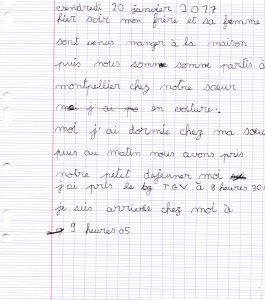 vendredi 20 janvier 2017
hier soir mon frère et sa femme
sont venus manger à la maison
puis nous somme partis à
montpellier chez notre sœur
j'ai en voiture.
moi j'ai dormie chez ma sœu
puis au matin nous avons pris
notre petit dejeuner moi
j'ai pris le TGV à 8 heures 30
je suis arrivée chez moi à
9 heures 05